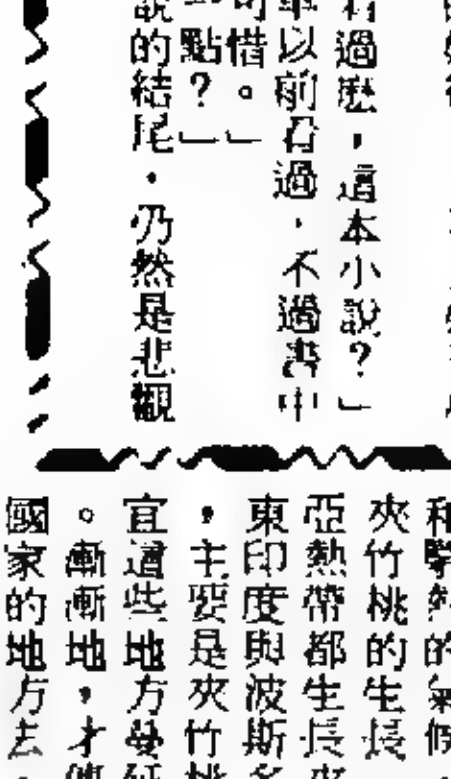 看過麽，這本小說？」
年以前看過，不過書中
可惜。」
一點？」
說的結尾，仍然是悲觀
和擊熱的氣候，
夾竹桃的生長
亞熱帶都生長夾
東印度與波斯多
，主要是夾竹桃
宜這些地方蔓延
。漸漸地，才傳
國家的地方去，